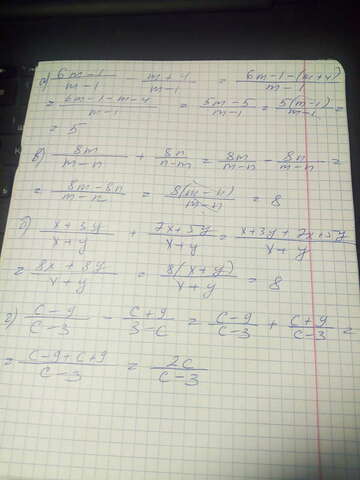 а) (6m-1)/(m-1) - (m+4)/(m-1) = (6m-1-(m+4))/(m-1) =
= (6m-1-m-4)/(m-1) = (5m-5)/(m-1) = 5(m-1)/(m-1) =
= 5
в) 8m/(m-n) + 8n/(n-m) = 8m/(m-n) - 8n/(m-n) =
= (8m-8n)/(m-n) = 8(m-n)/(m-n) = 8
б) (x+3y)/(x+y) + (7x+5y)/(x+y) = (x+3y+7x+5y)/(x+y)
= (8x+8y)/(x+y) = 8(x+y)/(x+y) = 8
г) (c-9)/(c-3) - (c+9)/(3-c) = (c-9)/(c-3) + (c+9)/(c-3) =
= (c-9+c+9)/(c-3) = 2c/(c-3)